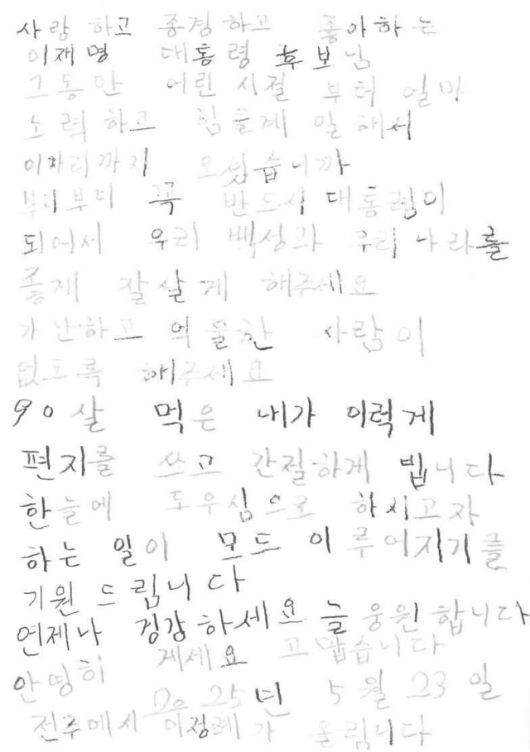 사랑 하고 종경 하고 좋아하는
이재명 대통령 후보님
그동안 어린 시절 부터 얼마
노력하고 힘들게 일 해서
이자리까지 오씼습니까
부디부디 꼭 반드시 대통령이
되어서 우리 백성과 우리 나라를
좋게 잘살게 해주세요
가난하고 억울한 사람이
없도록 해주세요
90살 먹은 내가 이렇게
편지를 쓰고 간절하게 빕니다
한늘에 도우심으로 하시고자
하는 일이 모드 이루어지기를
기원 드립니다
언제나 겅강하세요 늘 웅원합니다
안녕히 게세요 고맙습니다
2025년 5월 23일
전주에서 이정례가 올립니다